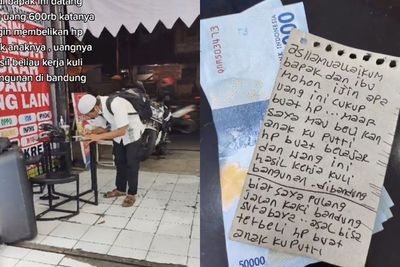 bapak ini datang
uang 600rb katanya
gin membelikan hp
k anaknya , uangnya
sil beliau kerja kuli
ngunan di bandung
OPPO
ANG LAIN
assalamuallaikum
bapak dan ibu
mohon izin apa
uang ini cukup
buat hp...
saya mau beli kan
anak ku putri
hp buat belajar
dan uang ini
hasil kerja kuli
bangunan ..dibandung
biar saya pulang
jalan kaki bandung
surabaya.. asal bisa
terbeli hp buat
anak ku putri
50000